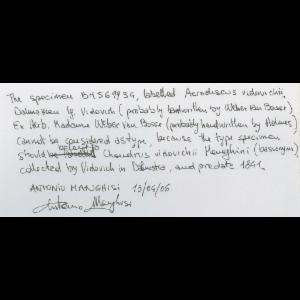 The specimen BM569439, labelled Acrodiscus vidovichii,
Dalmazien lg. Vidovich (probably handwritten by Weber van Bosse)
Ex Herb. Madame Weber van Bosse (probably handwritten by Holmes)
cannot be considered as type, because the type specimen
should belong to Chondrus vidovichii Meneghini (basionym),
collected by Vidovich in Dalmatia, and predate 1841.
ANTONIO MANGHISI 19/04/06
Antonio Manghisi